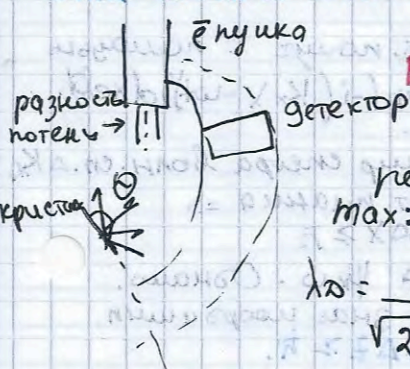 ē пушка
разность
потенц →
детектор
Θ
крист
max:
λD =
√2